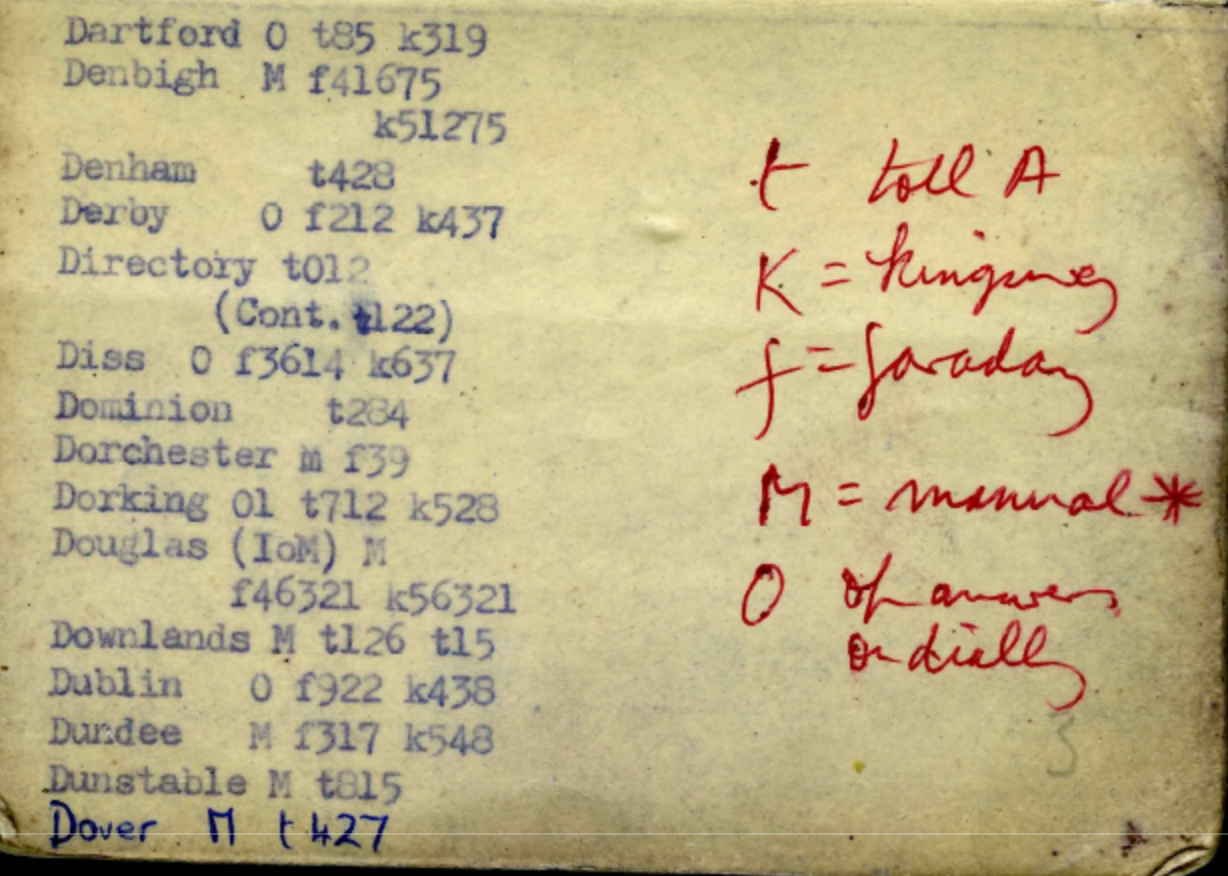 Dartford O t85 k319
Denbigh M f41675
k51275
Denham t428
Derby O f212 k437
Directory t012
(Cont. t122)
Diss O f3614 k637
Dominion t284
Dorchester m f39
Dorking Ol t712 k528
Douglas (IoM) M
f46321 k56321
Downlands M t126 t15
Dublin O f922 k438
Dundee M f317 k548
Dunstable M t815
Dover M t427
t toll A
K = Kingsway
f = faraday
M = manual *
O op answers
on dialling
3